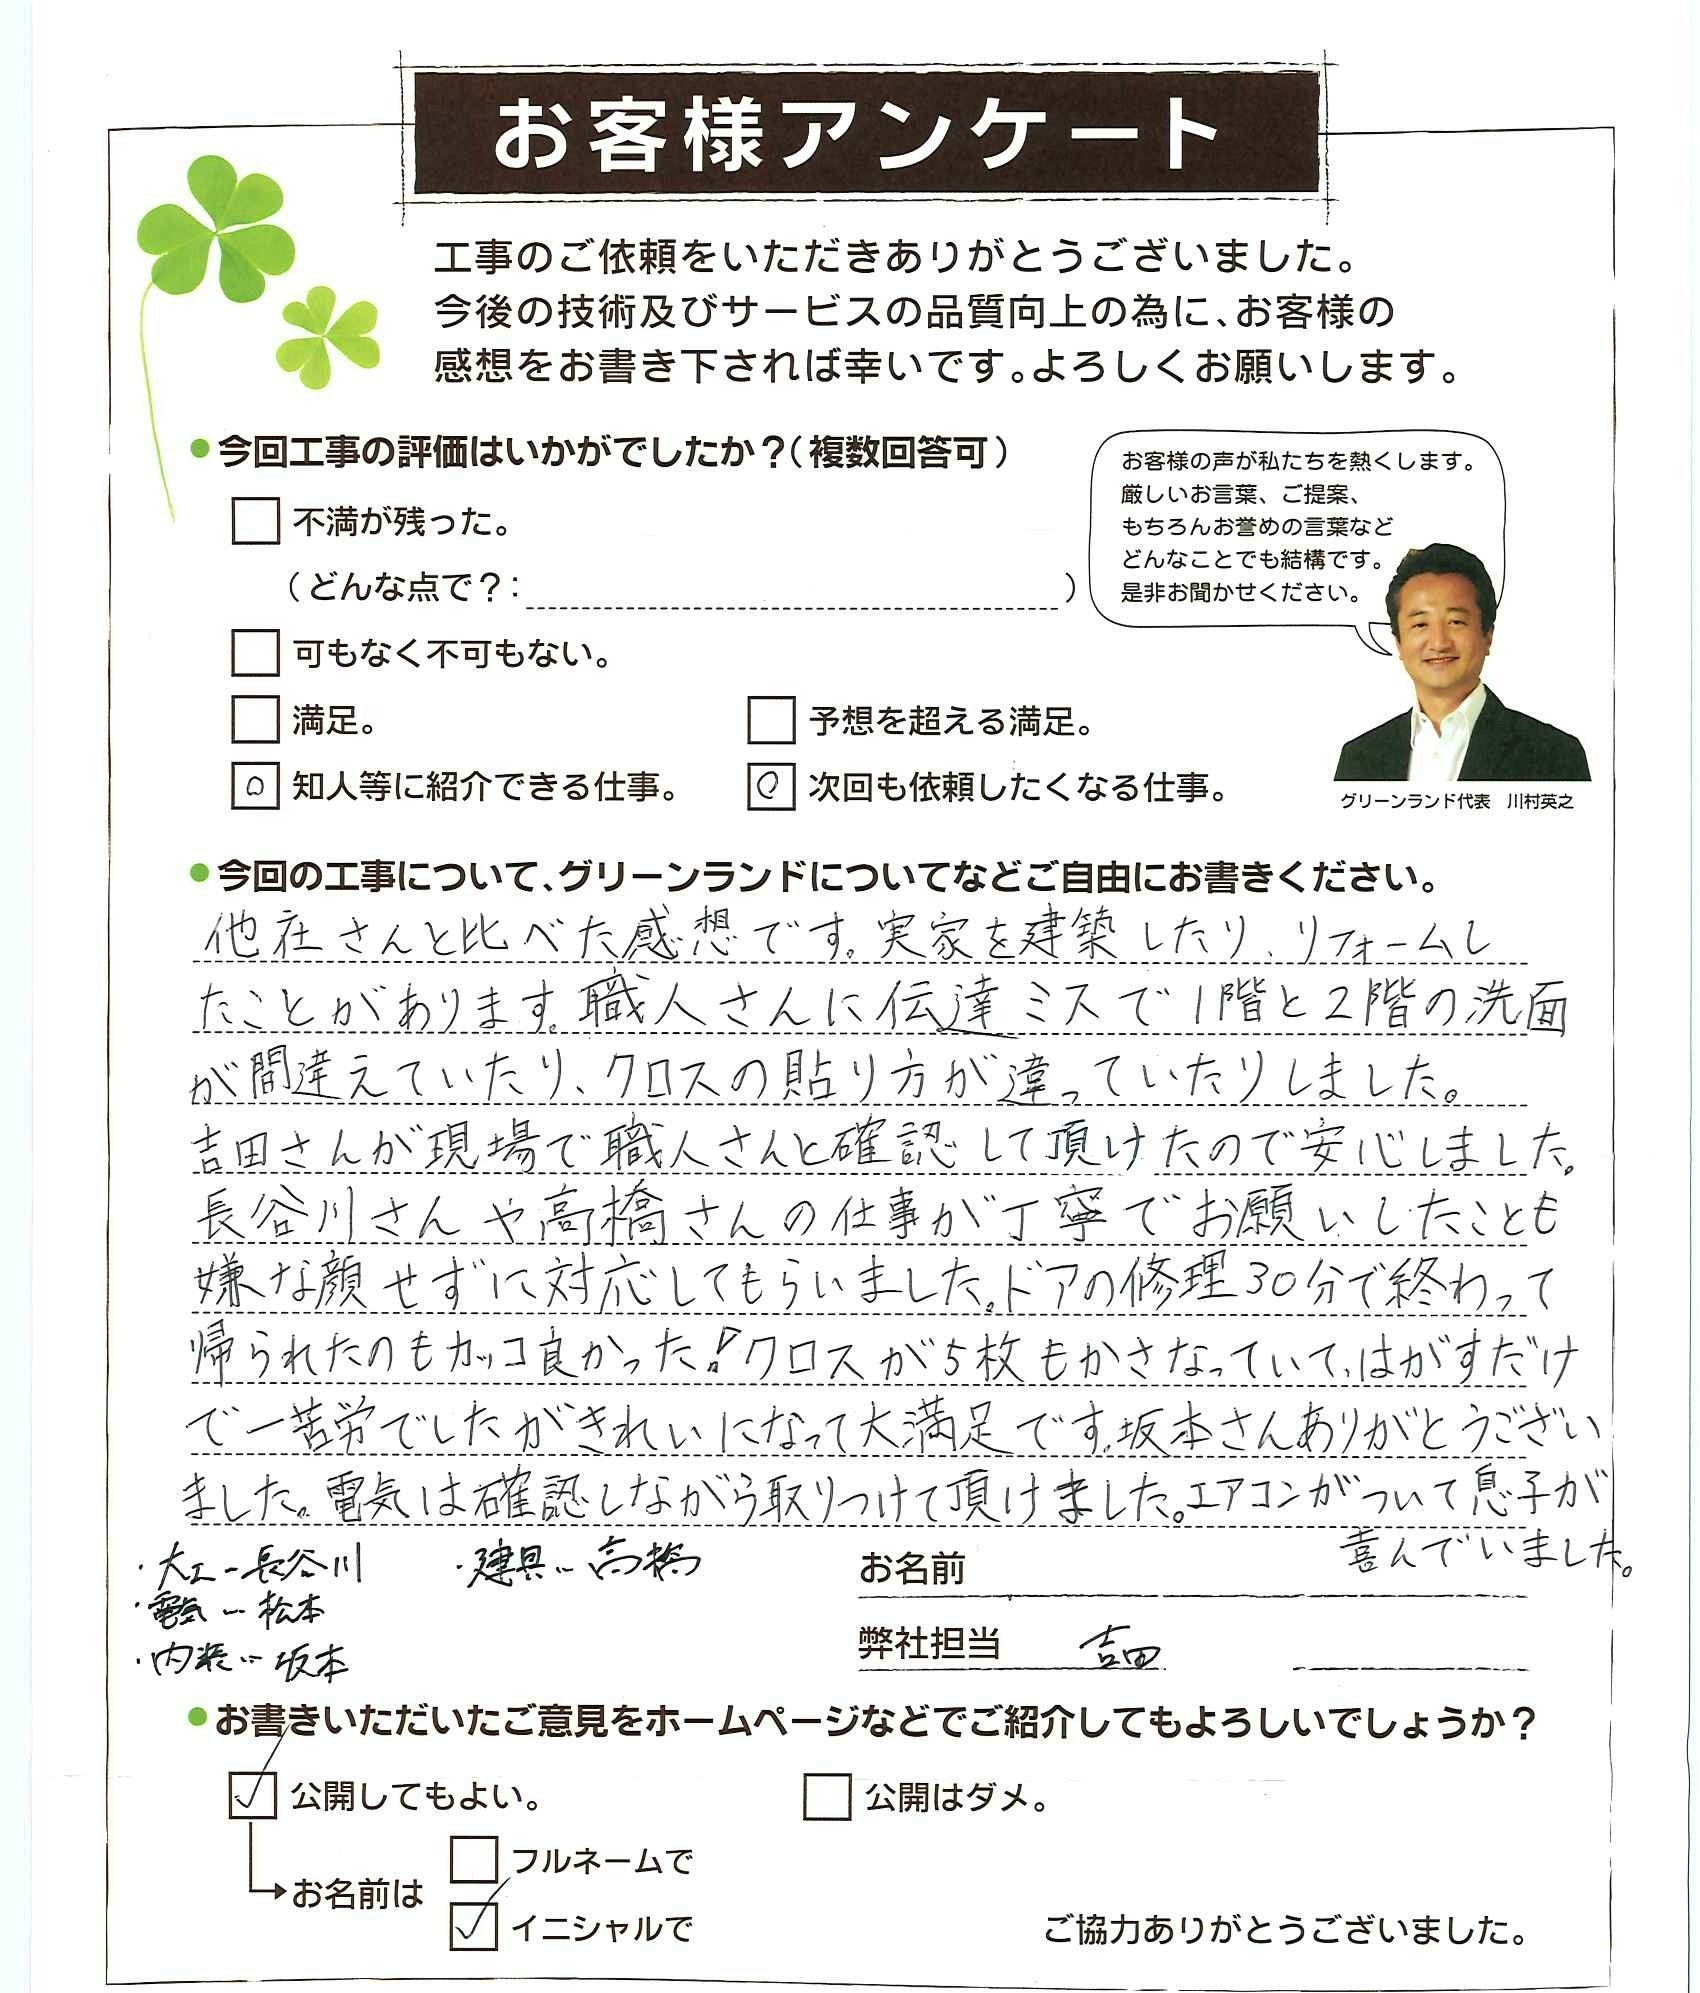 お客様アンケート
工事のご依頼をいただきありがとうございました。
今後の技術及びサービスの品質向上の為に、お客様の
感想をお書き下されれば幸いです。よろしくお願いします。
●今回工事の評価はいかがでしたか？（複数回答可）
不満が残った。
（どんな点で？：　）
可もなく不可もない。
満足。
予想を超える満足。
知人等に紹介できる仕事。
次回も依頼したくなる仕事。
お客様の声が私たちを熱くします。
厳しいお言葉、ご提案、
もちろんお誉めの言葉など
どんなことでも結構です。
是非お聞かせください。
グリーンランド代表　川村英之
●今回の工事について、グリーンランドについてなどご自由にお書きください。
他社さんと比べた感想です。実家を建築したり、リフォームし
たことがあります。職人さんに伝達ミスで1階と2階の洗面
が間違えていたり、クロスの貼り方が違っていたりしました。
吉田さんが現場で職人さんと確認して頂けたので安心しました。
長谷川さんや高橋さんの仕事が丁寧でお願いしたことも
嫌な顔せずに対応してもらいました。ドアの修理30分で終わって
帰られたのもカッコ良かった！クロスが5枚もかさなっていて、はがすだけ
で一苦労でしたがきれいになって大満足です。坂本さんありがとうござい
ました。電気は確認しながら取りつけて頂けました。エアコンがついて息子が
喜んでいました。
・大工…長谷川
・建具…高橋
・電気…松本
・内装…坂本
お名前
弊社担当　吉田
●お書きいただいたご意見をホームページなどでご紹介してもよろしいでしょうか？
公開してもよい。
公開はダメ。
お名前は
フルネームで
イニシャルで
ご協力ありがとうございました。